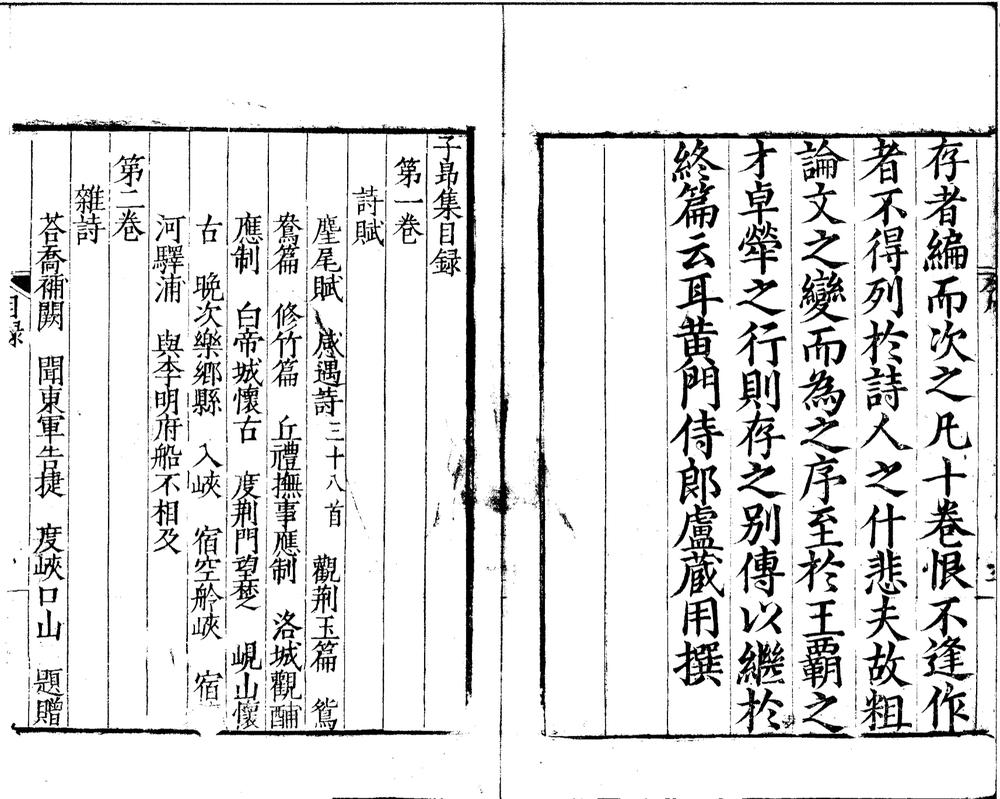 存者編而次之凡十卷恨不逢作
者不得列於詩人之什悲夫故粗
論文之變而為之序至於王霸之
才卓犖之行則存之别傳以繼於
終篇云耳黄門侍郎盧藏用撰
子昻集目録
第一卷
詩賦
麈尾賦 感遇詩三十八首 觀荆玉篇 鴛
鴦篇 修竹篇 丘禮撫事應制 洛城觀酺
應制 白帝城懷古 度荆門望楚 峴山懷
古 晩次樂鄉縣 入峽 宿空舲峽 宿
河驛浦 與李明府船不相及
第二卷
雜詩
荅喬補闕 聞東軍告捷 度峽口山 題贈
目録